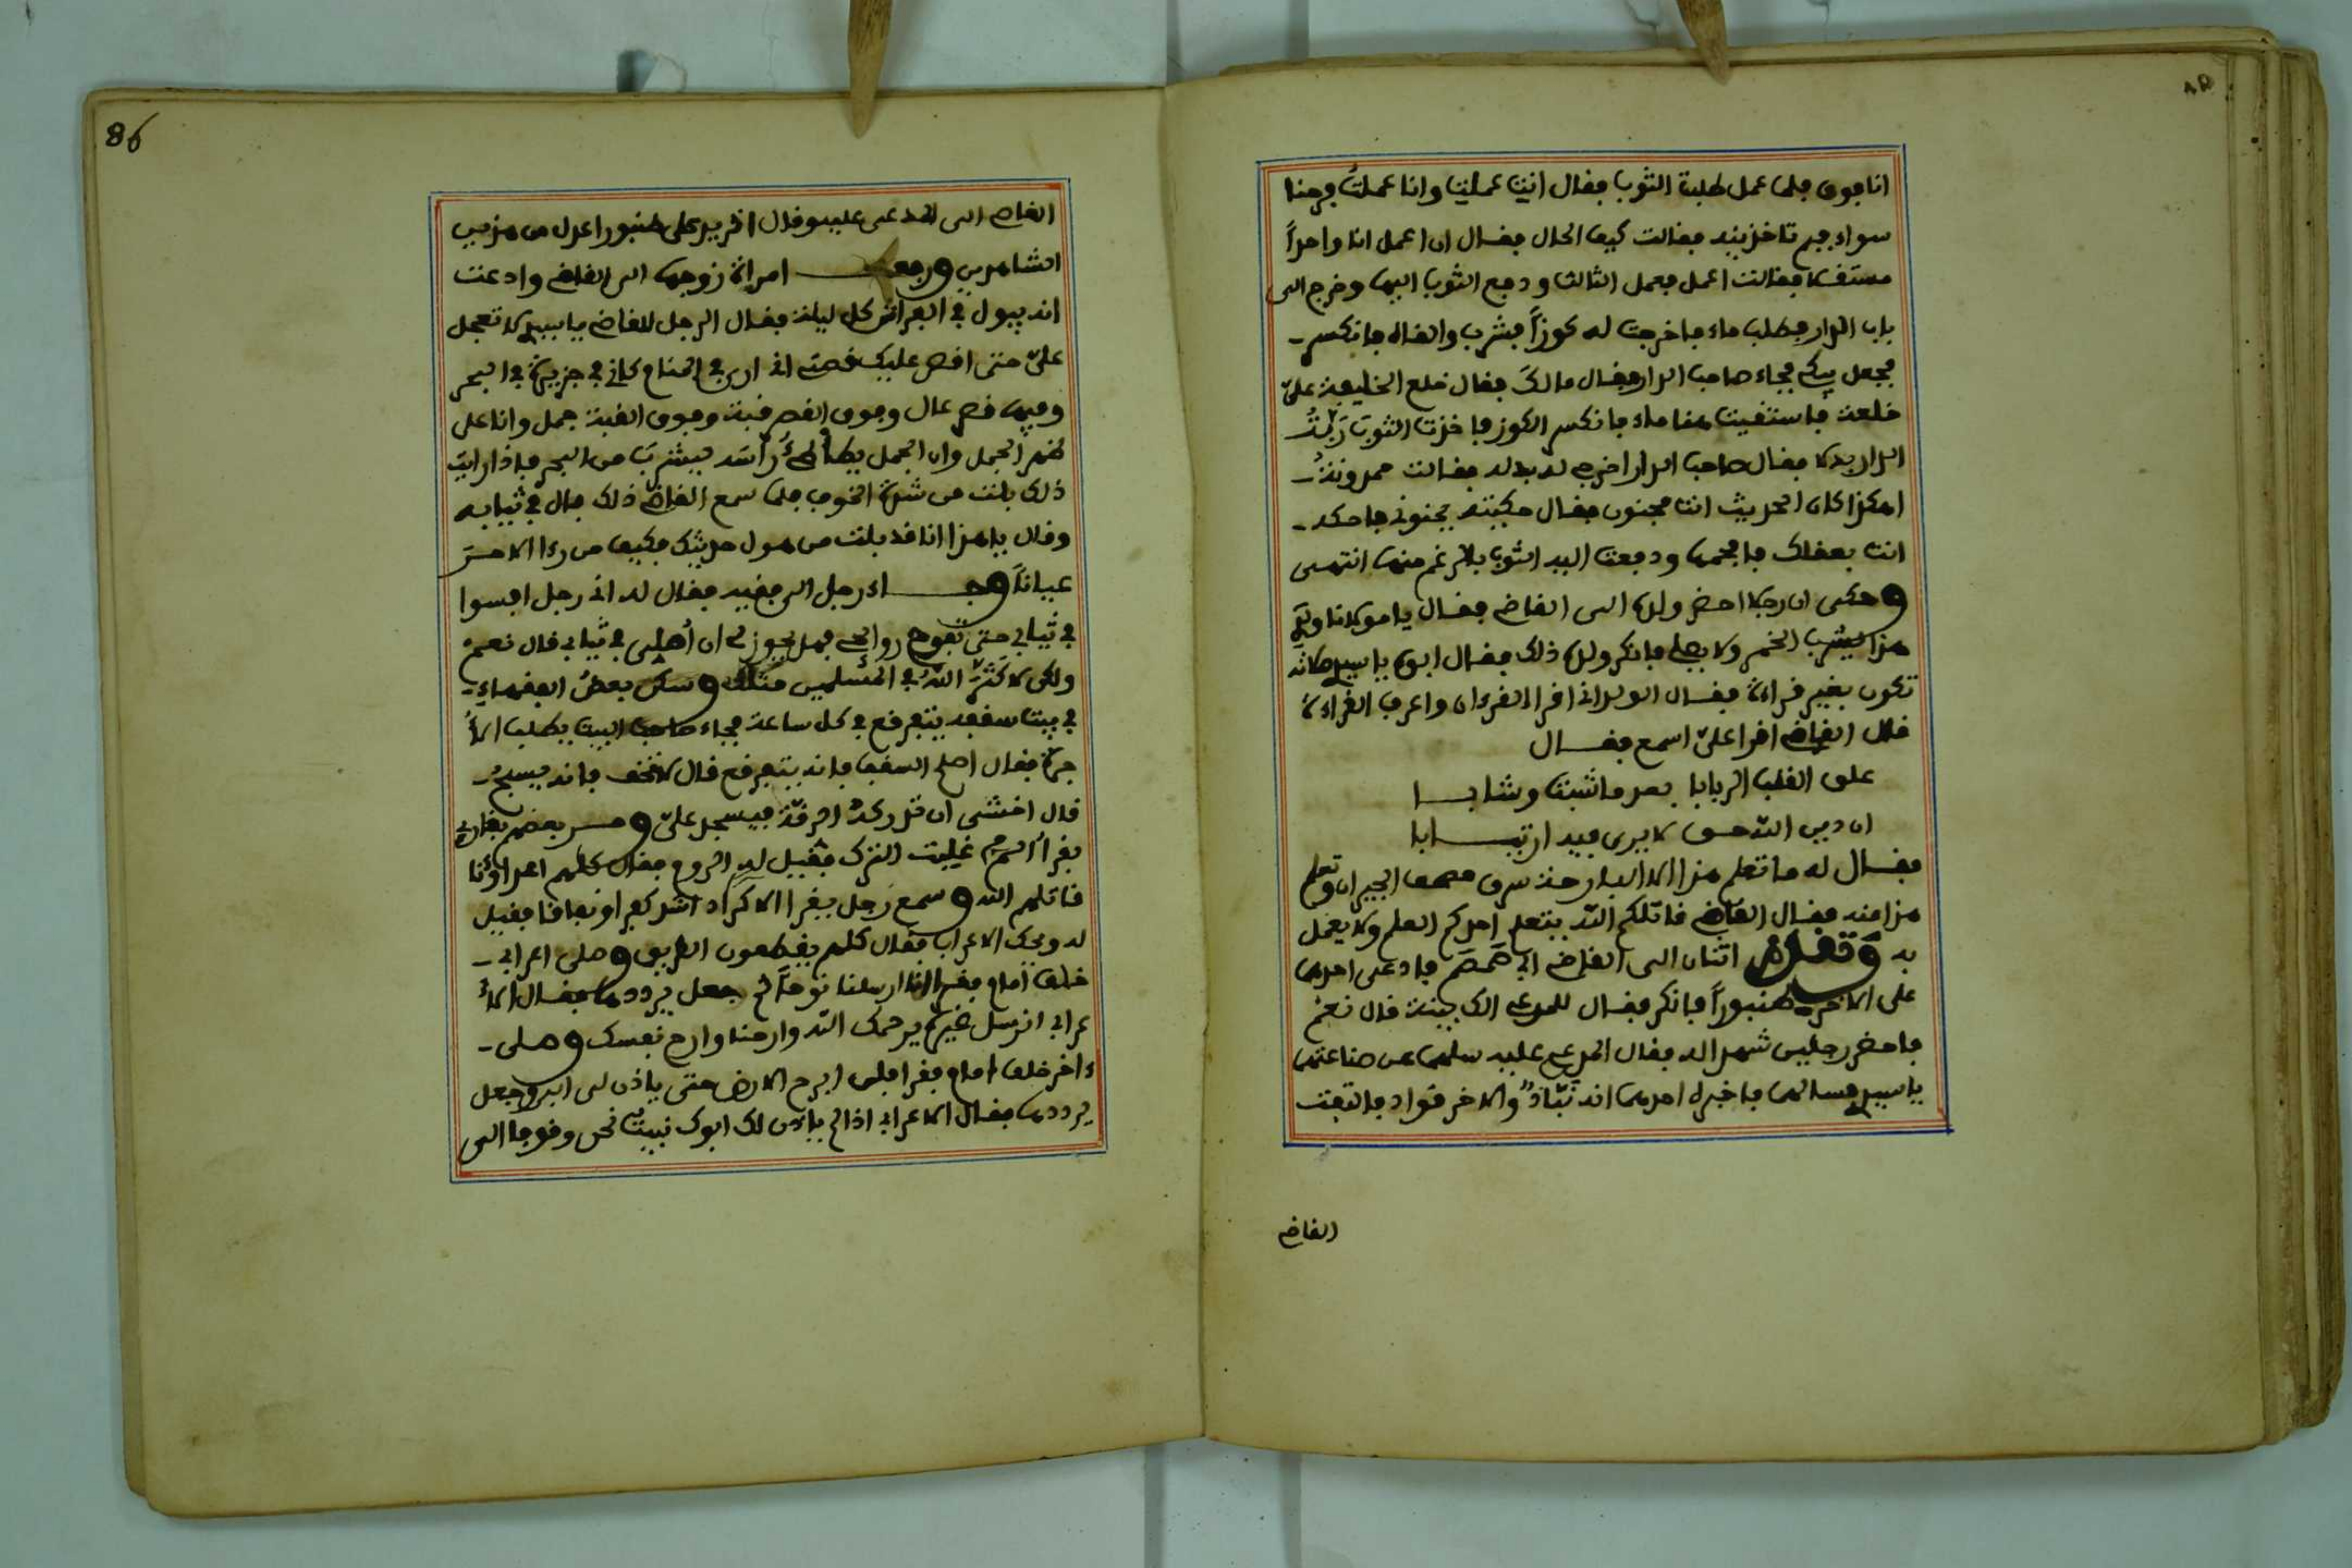 انا فوق فلما عمل طلبت الثوب فقال انت عملت وانا عملت فرحنا
سواء فبم تاخذينه فقالت كيف الحال فقال ان اعمل انا واحدا
مستقلا فقالت اعمل فعمل الثالث ودفع الثوب اليها وخرج الى
باب الدار فطلب ماء فاخرجت له كوزا فشرب والقاه فانكسر
فجعل يبكي فجاء صاحب الدار فقال مالك فقال خلع الخليفة علي
خلعة فاستقيت هنا ماء فانكسر الكوز فاخذت الثوب ربة
الدار بدلا فقال صاحب الدار اخرجي له بدله فقالت حمدونة
اهكذا كان الحديث انت مجنون فقال حكيته بجنوني فاحكه
انت بعقلك فافحمها ودفعت اليه الثوب بالرغم منها انتهى
وحكى ان رجلا احضر ولده الى القاضي فقال يا مولانا ولدي
هذا يشرب الخمر ولا يصلي فانكر ولده ذلك فقال ابوه يا سيدي صلاته
تكون بغير قراءة فقال الولد اني اقرا القرءان واعرف القراءة
قال القاضي اقرا علي اسمع فقال
علق القلب الربابا بعد ما شبت وشابا
ان دين الله حق لا يرى فيه ارتيابا
فقال له ما تعلم هذا الا البارحة سرق مصحف الجيران وتعلم
هذا منه فقال القاضي قاتلكم الله يتعلم احدكم العلم ولا يعمل
به وتقدم اثنان الى القاضي ابي ضمضم فادعى احدهما
على الاخر طنبورا فانكر فقال للمدعي الك بينة قال نعم
فاحضر رجلين شهدا له فقال المدعى عليه سلهما عن صناعتهما
يا سيدي فسالهما فاخبره احدهما انه نباذ والاخر قواد فالتفت
القاضي
86
القاضي الى المدعى عليه وقال اتريد على طنبور اعدل من هذين
الشاهدين ورفعت امراة زوجها الى القاضي وادعت
انه يبول في الفراش كل ليلة فقال الرجل للقاضي يا سيدي لا تعجل
علي حتى اقص عليك قصتي اني ارى في المنام كاني في جزيرة في البحر
وفيها قصر عال وفوق القصر قبة وفوق القبة جمل وانا على
ظهر الجمل وان الجمل يطاطئ راسه ليشرب من البحر فاذا رايت
ذلك بلت من شدة الخوف فلما سمع القاضي ذلك بال في ثيابه
وقال يا هذا انا قد بلت من هول حديثك فكيف من رءا الامر
عيانا وجاء رجل الى فقيه فقال له اني رجل افسوا
في ثيابي حتى تفوح روائحي فهل يجوز لي ان اصلي في ثيابي قال نعم
ولكن لا كثر الله في المسلمين مثلك وسكن بعض الفقهاء
في بيت سقفه يتفرقع في كل ساعة فجاء صاحب البيت يطلب الا
جرة فقال اصلح السقف فانه يتفرقع قال لا تخف فانه يسبح
قال اخشى ان تدركه الرقة فيسجد علي ومر بعضهم بقارئ
يقرا الم غلبت الترك فقيل له الروم فقال كلهم اعداؤنا
قاتلهم الله وسمع رجل يقرا الاكراد اشد كفرا ونفاقا فقيل
له ويحك الاعراب فقال كلهم يقطعون الطريق وصلى اعرابي
خلف امام فقرا انا ارسلنا نوحا ثم جعل يرددها فقال الا
عرابي ارسل غيره يرحمك الله وارحنا وارح نفسك وصلى
ءاخر خلف امام فقرا فلن ابرح الارض حتى ياذن لي ابي وجعل
يرددها فقال الاعرابي اذا لم ياذن لك ابوك نبيت نحن وقوفا الى